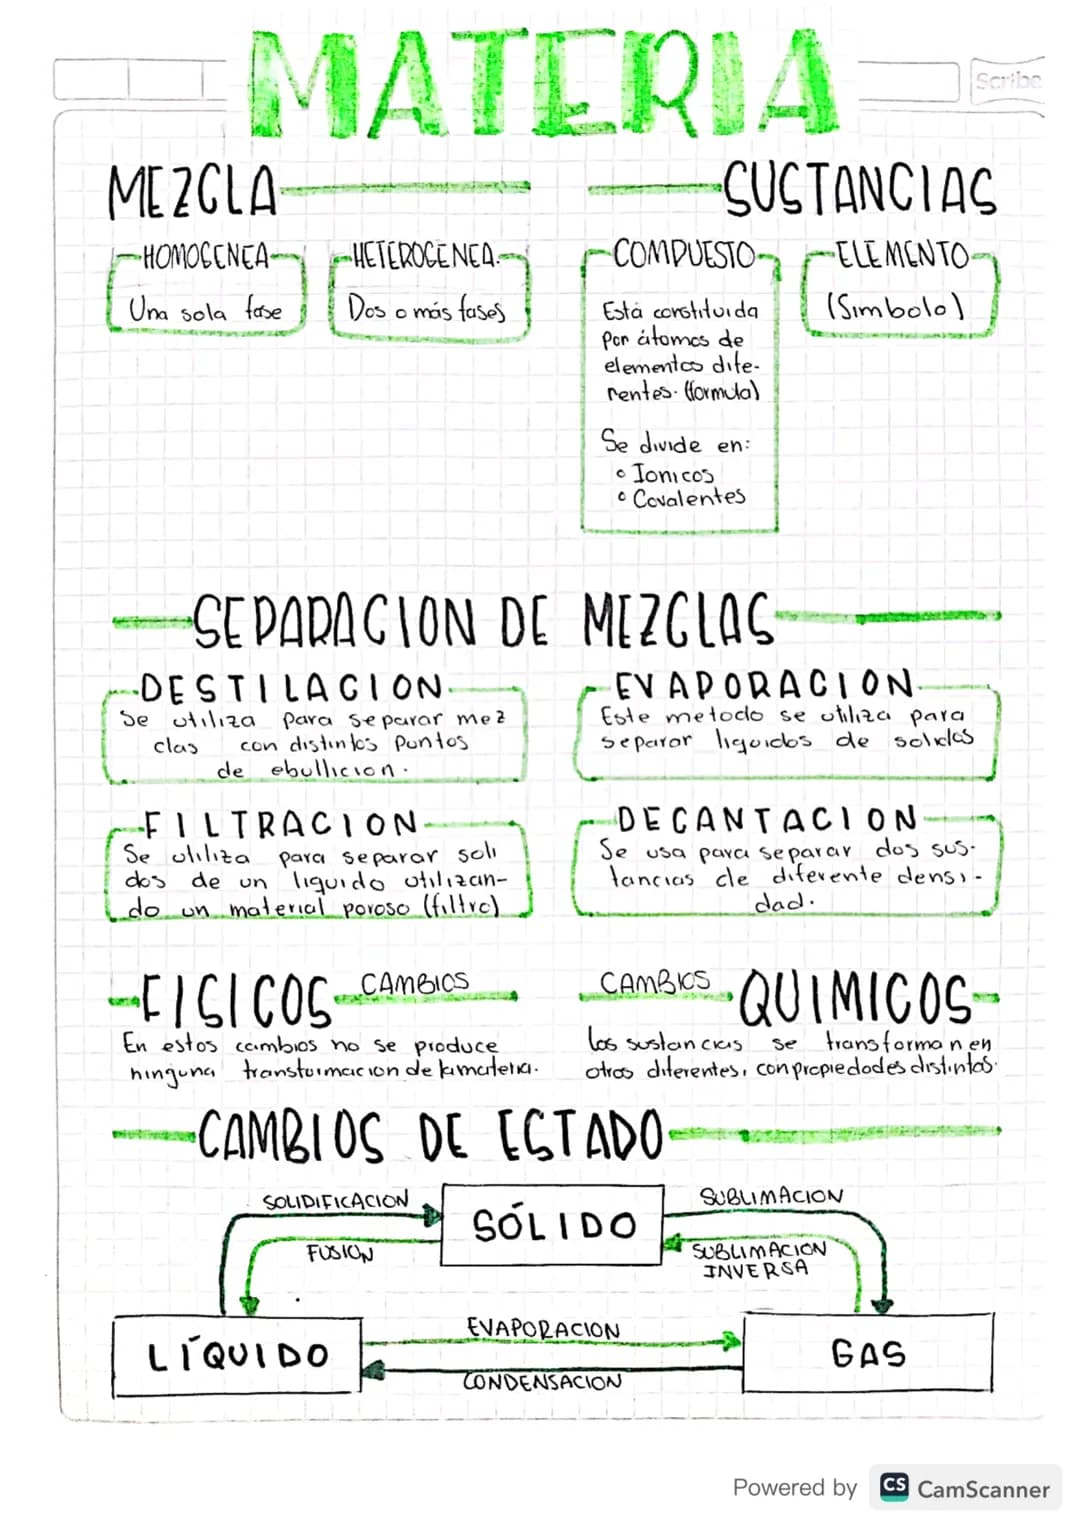 Scribe
MATERIA
MEZCLA
SUSTANCIAS
HOMOGENEA
Una sola fase
HETEROGENEA.
Dos o más fases
COMPUESTO
Està constituida
por átomos de
elementos dife-
rentes. (formula)
Se divide en:
◦ Ionicos
◦ Covalentes
ELEMENTO
(Simbolo)
SEPARACION DE MEZCLAS
DESTILACION
Se utiliza para separar mez
clas con distintos puntos
de ebullicion.
EVAPORACION
Este metodo se utiliza para
separar liquidos de solidos
FILTRACION
Se utiliza para separar soli
dos de un liquido utilizan-
do un material poroso (filtro)
DECANTACION
Se usa para separar dos sus-
tancias de diferente densi-
dad.
FISICOS CAMBIOS
En estos cambios no se produce
ninguna transformacion de la materia.
CAMBIOS QUIMICOS
las sustancias se transforman en
otras diferentes, con propiedades distintas.
CAMBIOS DE ESTADO
SOLIDIFICACION
FUSION
SÓLIDO
SUBLIMACION
SUBLIMACION
INVERSA
LÍQUIDO
EVAPORACION
CONDENSACION
GAS
Powered by CS CamScanner